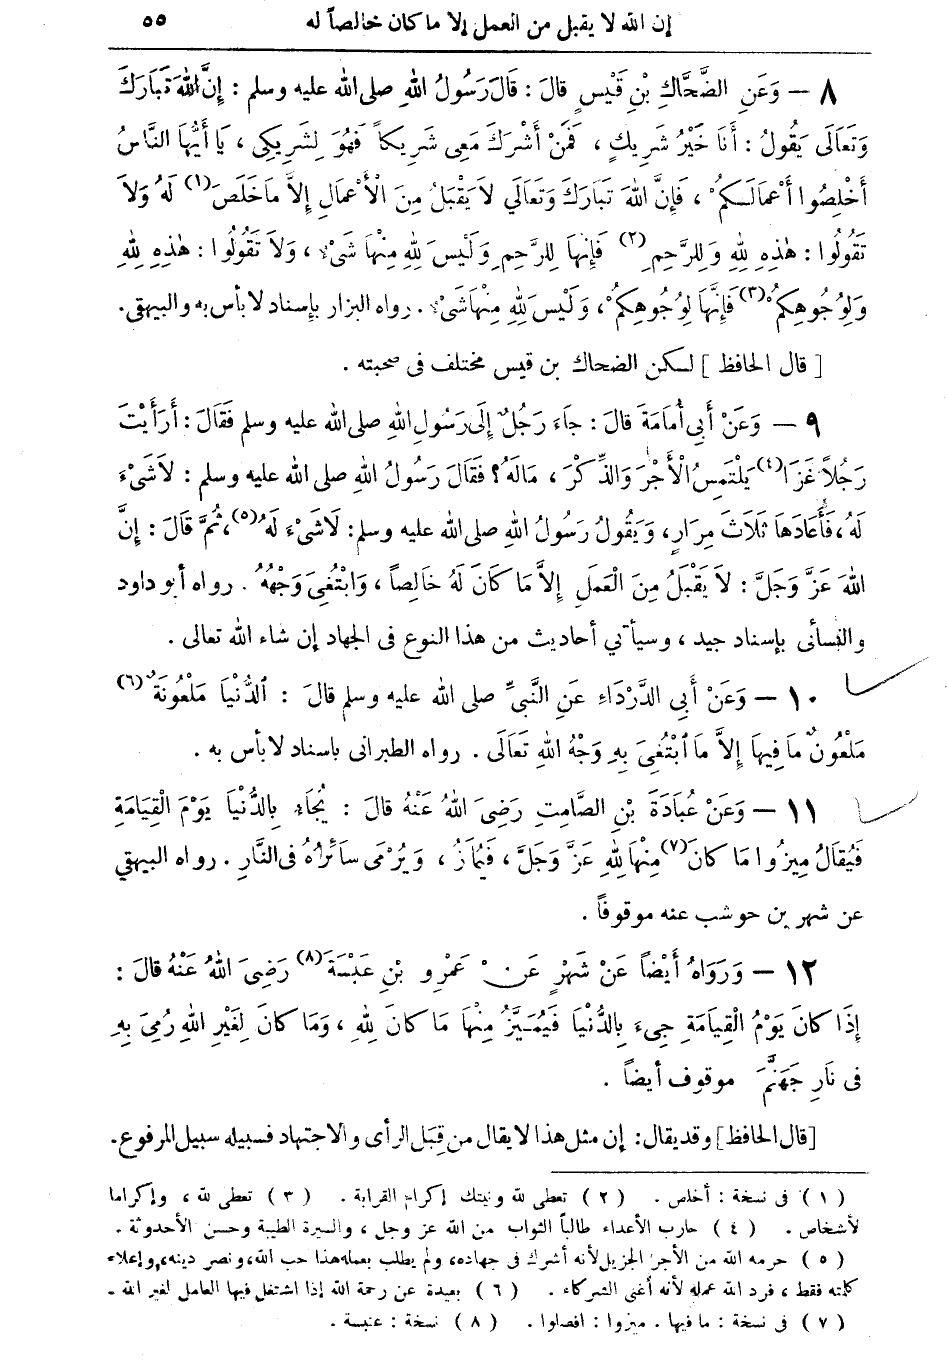 إن الله لا يقبل من العمل إلا ما كان خالصاً له ٥٥
٨ — وَعَنِ الضَّحَّاكِ بْنِ قَيْسٍ قالَ : قَالَ رَسُولُ اللهِ صلى الله عليه وسلم : إِنَّ اللهَ تَبَارَكَ
وَتَعَالَى يَقُولُ : أَنَا خَيْرُ شَرِيكٍ ، فَمَنْ أَشْرَكَ مَعِى شَرِيكاً فَهُوَ لِشَرِيكِى ، يَا أَيُّهَا النَّاسُ
أَخْلِصُوا أَعْمَالَكُمْ ، فَإِنَّ اللهَ تَبَارَكَ وَتَعَالَى لاَ يَقْبَلُ مِنَ الْأَعْمَالِ إِلاَّ مَا خَلَصَ (١) لَهُ وَلاَ
تَقُولُوا : هٰذِهِ لِلهِ وَلِلرَّحِمِ (٢) فَإِنَّهَا لِلرَّحِمِ وَلَيْسَ لِلهِ مِنْهَا شَىْءٌ ، وَلاَ تَقُولُوا : هٰذِهِ لِلهِ
وَلِوُجُوهِكُمْ (٣) فَإِنَّهَا لِوُجُوهِكُمْ ، وَلَيْسَ لِلهِ مِنْهَا شَىْءٌ . رواه البزار بإسناد لا بأس به والبيهقى.
[ قال الحافظ ] لكن الضحاك بن قيس مختلف فى صحبته .
٩ — وَعَنْ أَبِى أُمَامَةَ قالَ : جَاءَ رَجُلٌ إِلَى رَسُولِ اللهِ صلى الله عليه وسلم فَقَالَ : أَرَأَيْتَ
رَجُلاً غَزَا (٤) يَلْتَمِسُ الْأَجْرَ وَالذِّكْرَ ، مَالَهُ ؟ فَقَالَ رَسُولُ اللهِ صلى الله عليه وسلم : لاَ شَىْءَ
لَهُ ، فَأَعَادَهَا ثَلاَثَ مِرَارٍ ، وَيَقُولُ رَسُولُ اللهِ صلى الله عليه وسلم : لاَ شَىْءَ لَهُ (٥) ، ثُمَّ قَالَ : إِنَّ
اللهَ عَزَّ وَجَلَّ : لاَ يَقْبَلُ مِنَ الْعَمَلِ إِلاَّ مَا كَانَ لَهُ خَالِصاً ، وَابْتُغِىَ وَجْهُهُ . رواه أبو داود
والنسائى بإسناد جيد ، وسيأتى أحاديث من هذا النوع فى الجهاد إن شاء الله تعالى .
١٠ — وَعَنْ أَبِى الدَّرْدَاءِ عَنِ النَّبِىِّ صلى الله عليه وسلم قالَ : الدُّنْيَا مَلْعُونَةٌ (٦)
مَلْعُونٌ مَا فِيهَا إِلاَّ مَا ابْتُغِىَ بِهِ وَجْهُ اللهِ تَعَالَى . رواه الطبرانى باسناد لا بأس به .
١١ — وَعَنْ عُبَادَةَ بْنِ الصَّامِتِ رَضِىَ اللهُ عَنْهُ قالَ : يُجَاءُ بِالدُّنْيَا يَوْمَ الْقِيَامَةِ
فَيُقَالُ مِيزُوا مَا كَانَ (٧) مِنْهَا لِلهِ عَزَّ وَجَلَّ ، فَيُمَازُ ، وَيُرْمَى سَائِرُهُ فِى النَّارِ . رواه البيهقي
عن شهر بن حوشب عنه موقوفاً .
١٢ — وَرَوَاهُ أَيْضاً عَنْ شَهْرٍ عَنْ عَمْرِو بْنِ عَبْسَةَ (٨) رَضِىَ اللهُ عَنْهُ قالَ :
إِذَا كَانَ يَوْمُ الْقِيَامَةِ جِىءَ بِالدُّنْيَا فَيُمَيَّزُ مِنْهَا مَا كَانَ لِلهِ ، وَمَا كَانَ لِغَيْرِ اللهِ رُمِىَ بِهِ
فى نَارِ جَهَنَّمَ موقوف أيضاً .
[ قال الحافظ ] وقد يقال : إن مثل هذا لا يقال من قِبَل الرأى والاجتهاد فسبيله سبيل المرفوع.
( ١ ) فى نسخة : أخلص . ( ٢ ) تعطى لله ونيتك إكرام القرابة . ( ٣ ) تعطى لله ، وإكراما
لأشخاص . ( ٤ ) حارب الأعداء طالباً الثواب من الله عز وجل ، والسيرة الطيبة وحسن الأحدوثة .
( ٥ ) حرمه الله من الأجر الجزيل لأنه أشرك فى جهاده ، ولم يطلب بعمله هذا حب الله ، ونصر دينه ، وإعلاء
كلمته فقط ، فرد الله عمله لأنه أغنى الشركاء . ( ٦ ) بعيدة عن رحمة الله إذا اشتغل فيها العامل لغير الله ـ
( ٧ ) فى نسخة : ما فيها . ميزوا : افصلوا . ( ٨ ) نسخة : عنبسة .